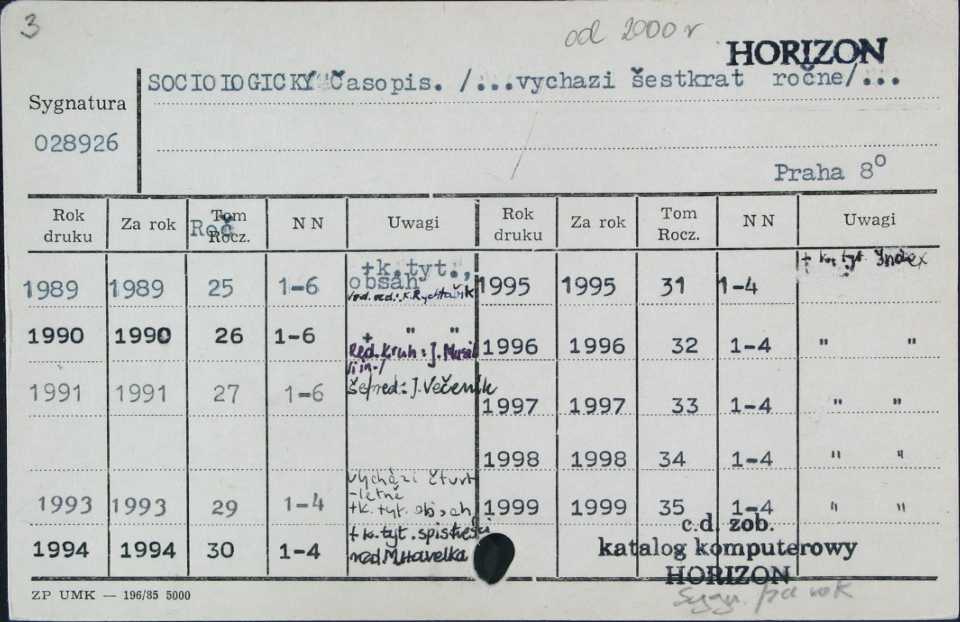 3
od 2000 r
HORIZON
SOCIOLOGICKÝ Časopis. /...vychazi šestkrat ročne/...
Sygnatura
028926
Praha 8°
Rok druku Za rok Tom Rocz. Roč N N Uwagi Rok druku Za rok Tom Rocz. N N Uwagi
1989 1989 25 1-6 +k.tyt., obsah 1995 1995 31 1-4 + k. tyt. Index
1990 1990 26 1-6 + " " Red. Kruh: J. Musil 1996 1996 32 1-4 " "
1991 1991 27 1-6 šefred: J. Večerník 1997 1997 33 1-4 " "
1998 1998 34 1-4 " "
1993 1993 29 1-4 vychází čtvrt-letně +k. tyt. obsah 1999 1999 35 1-4 " "
1994 1994 30 1-4 + k. tyt. spis treści red M. Havelka
c.d. zob.
katalog komputerowy
HORIZON
Sygn. za rok
ZP UMK — 196/85 5000